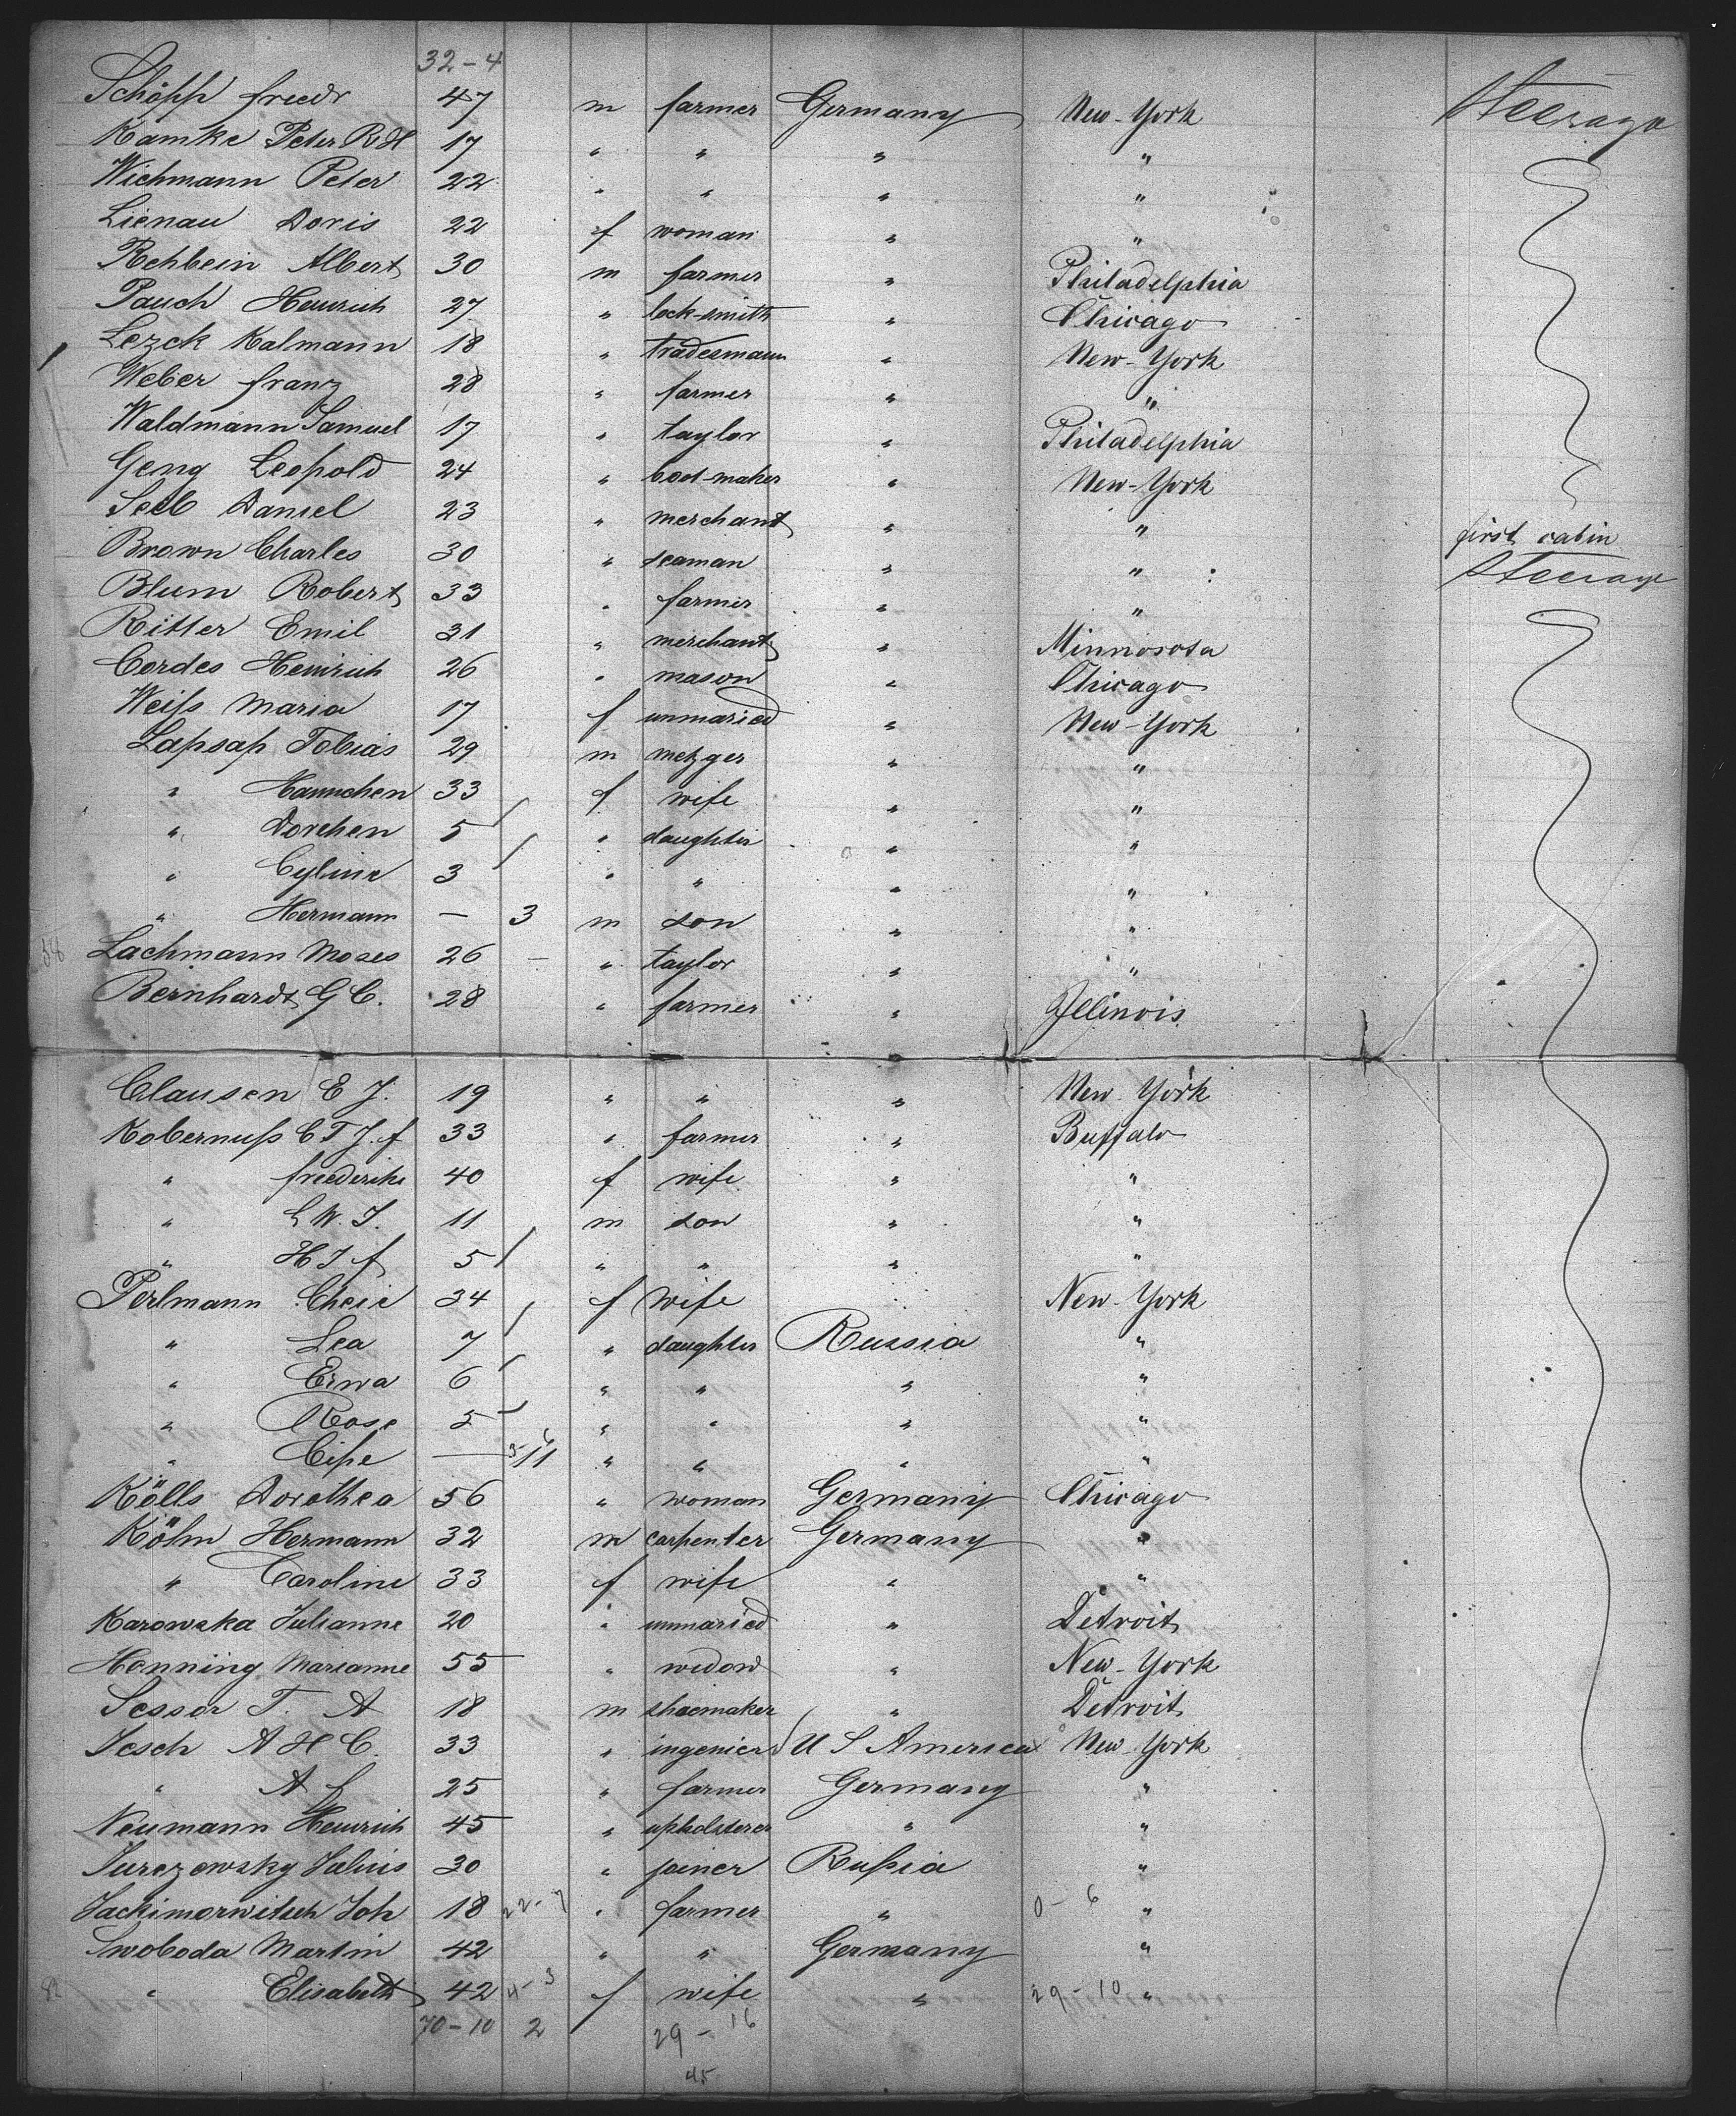 32-4
Schöpp friedr 47 m farmer Germany New-York Steerage
Kamke Peter R H 17 " " " "
Wichmann Peter 22 " " " "
Lienau Doris 22 f woman " "
Rehbein Albert 30 m farmer " Philadelphia
Pauch Heinrich 27 " lock-smith " Chicago
Lezck Kalmann 18 " tradesmann " New-York
Weber franz 28 " farmer " "
Waldmann Samuel 17 " taylor " Philadelphia
Geng Leopold 24 " boot-maker " New-York
Seeb Daniel 23 " merchant " " first cabin
Brown Charles 30 " seaman " " Steerage
Blum Robert 33 " farmer " "
Ritter Emil 31 " merchant " Minnosota
Cordes Heinrich 26 " mason " Chicago
Weiſs Maria 17 f unmaried " New-York
Lapsap Tobias 29 m metzger " "
" Hannchen 33 f wife " "
" Dorchen 5 / " daughter " "
" Cyline 3 / " " " "
" Hermann — 3 m son " "
58 Lachmann Moses 26 — " taylor " "
Bernhardt G C. 28 " farmer " Illinois
Clausen E J. 19 " " " New-York
Kobernuſs C T J. f 33 " farmer " Buffalo
" friederike 40 f wife " "
" L W. J. 11 m son " "
" H J f 5 / " " " "
Perlmann Cheie 34 f wife " New-York
" Lea 7 / " daughter Russia "
" Erwa 6 / " " " "
" Rose 5 / " " " "
" Cipe — 11 " " " "
Kölls Dorothea 56 " woman Germany Chicago
Köhn Hermann 32 m carpenter Germany "
" Caroline 33 f wife " "
Karowska Julianne 20 " unmaried " Detroit
Henning Marianne 55 " widow " New-York
Sessor T. A 18 m shoemaker " Detroit
Jesch A H C. 33 " ingenier U S America New-York
" A L 25 " farmer Germany "
Neumann Heinrich 45 " upholsterer " "
Jurezowsky Julius 30 " joiner Ruſsia "
Jackimorwitsch Joh 18 22-7 " farmer " 0-6 "
Swoboda Martin 42 " " Germany "
82 " Elisabeth 42 4-3 f wife " 29-10 "
70-10 2 29-16
45